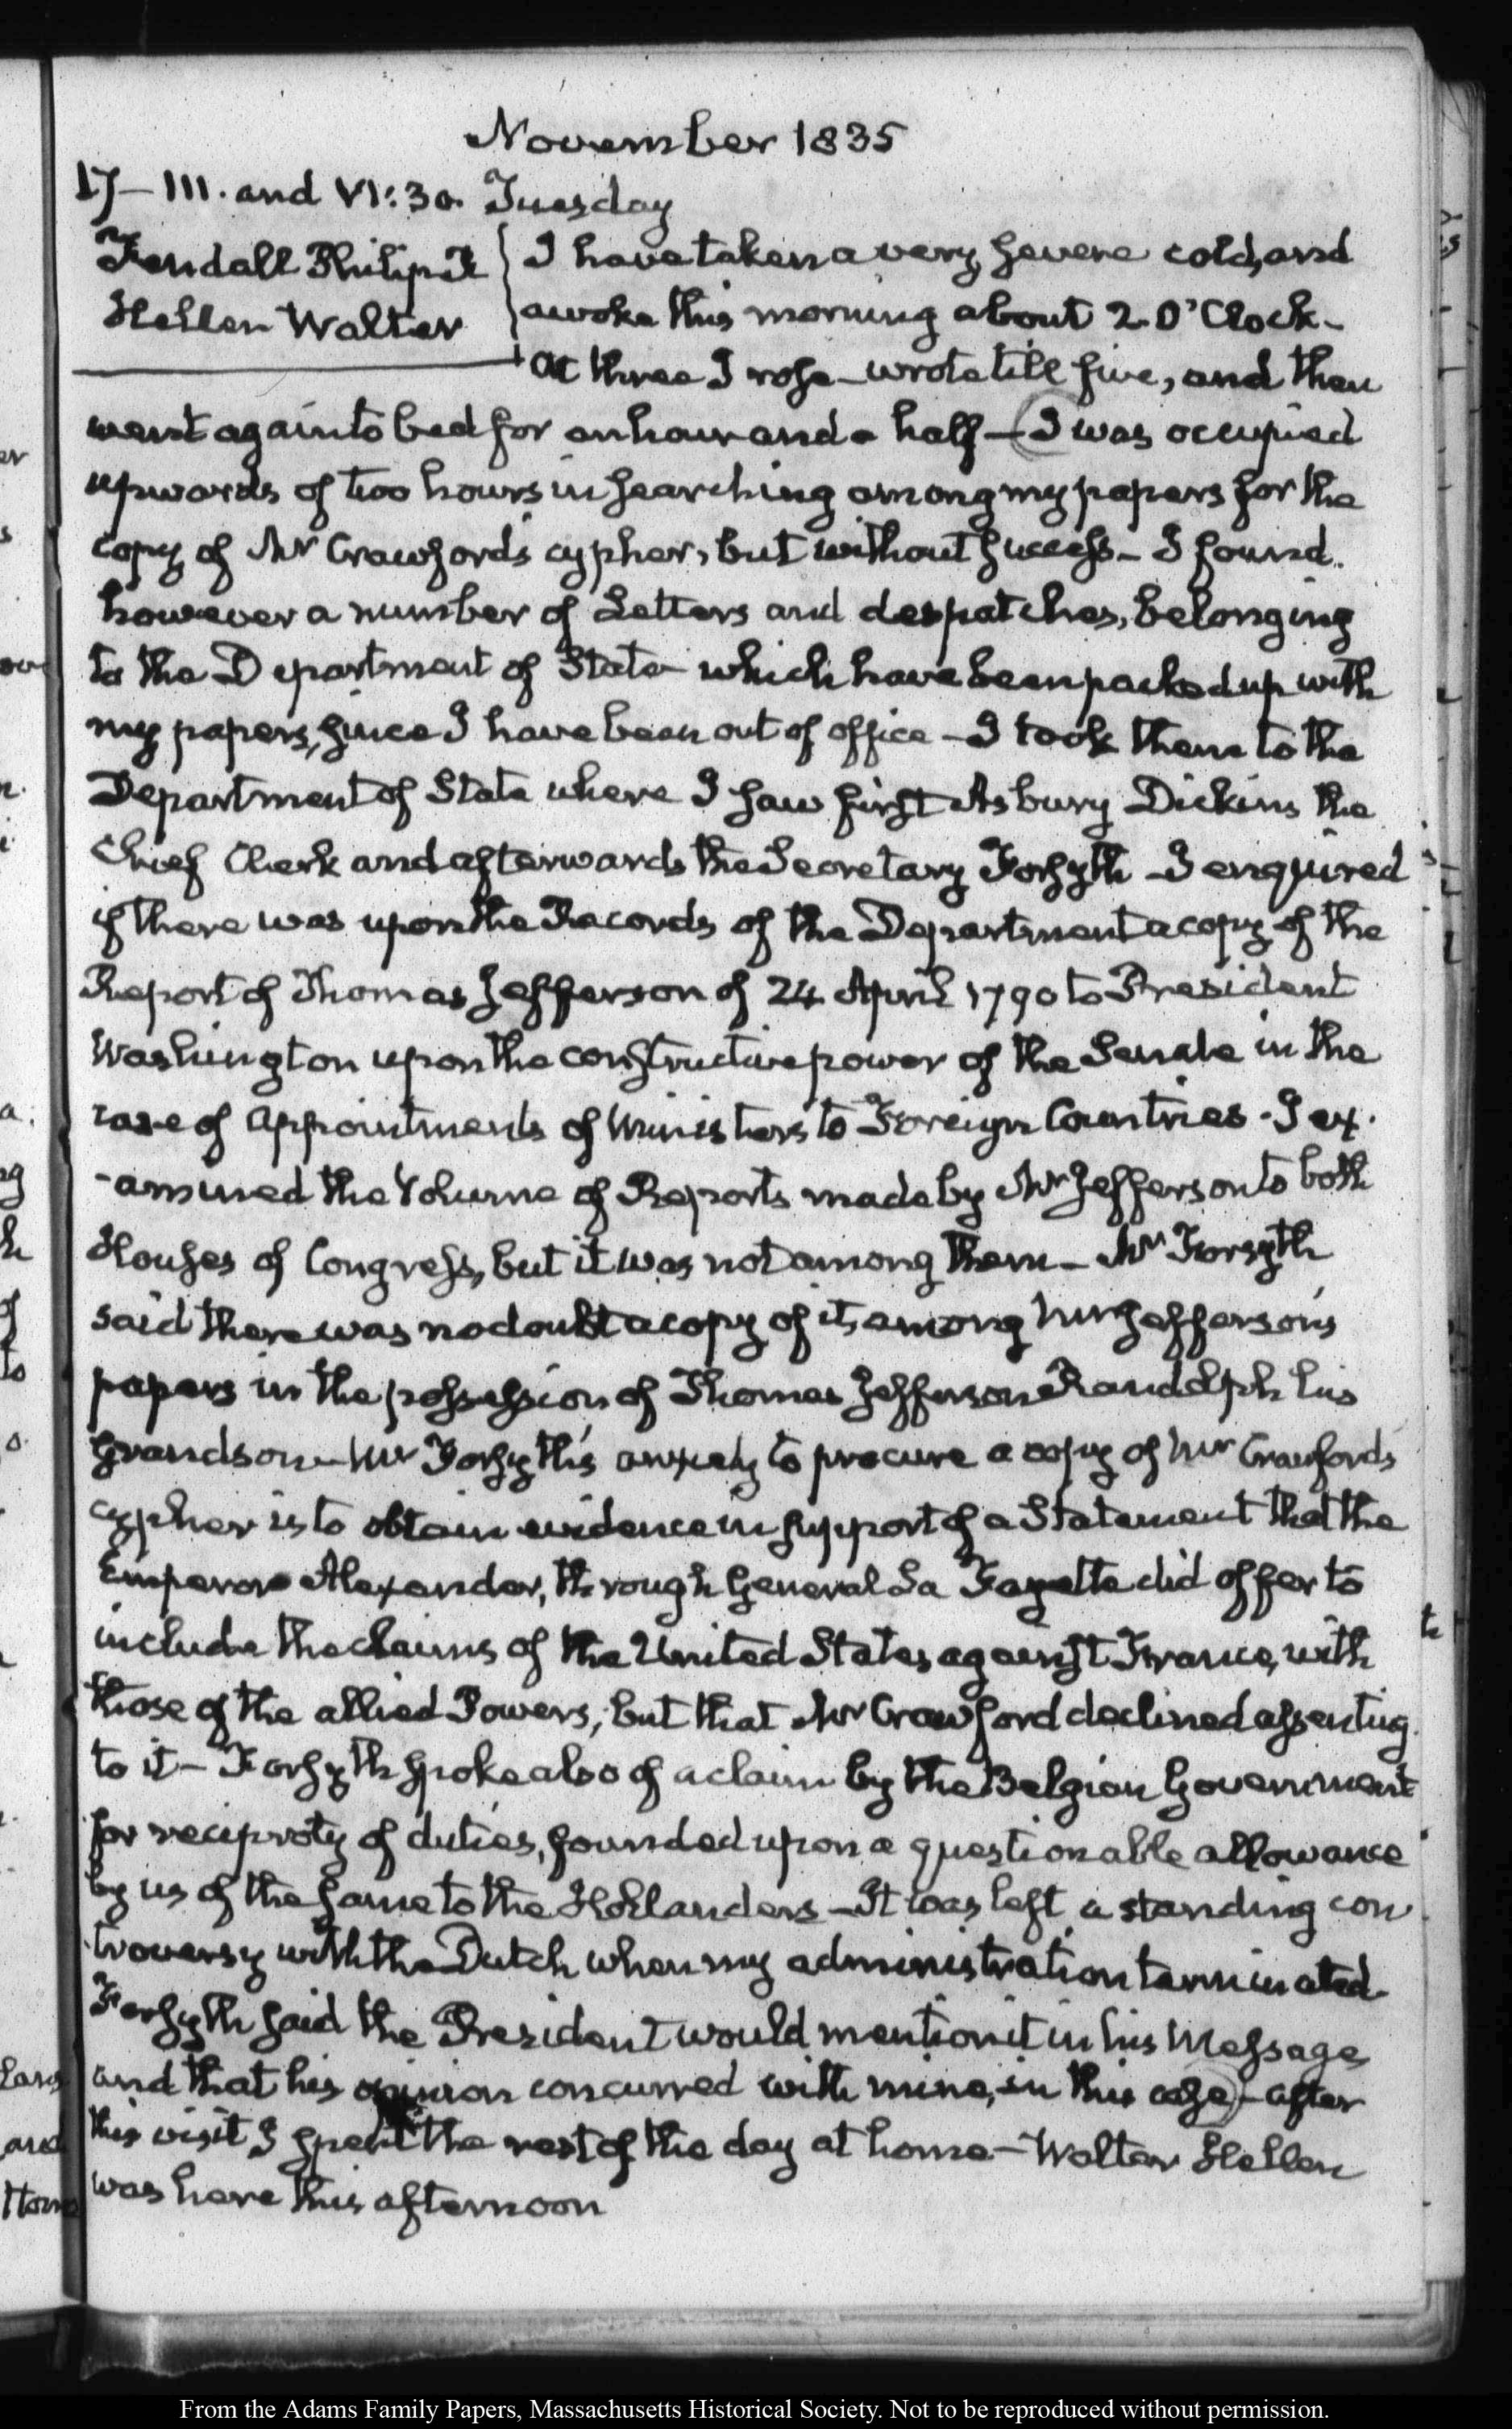 November 1835
17 — III. and VI:30. Tuesday
Fendall Philip R
Hellen Walter
I have taken a very severe cold, and
awoke this morning about 2. O'Clock —
At three I rose — wrote till five, and then
went again to bed for an hour and a half — I was occupied
upwards of two hours in searching among my papers for the
copy of Mr Crawford's cypher, but without success — I found.
however a number of Letters and despatches, belonging
to the Department of State which have been packed up with
my papers, since I have been out of office — I took them to the
Department of State where I saw first Asbury Dickins the
Chief Clerk and afterwards the Secretary Forsyth — I enquired
if there was upon the Records of the Department a copy of the
Report of Thomas Jefferson of 24. April 1790 to President
Washington upon the constructive power of the Senate in the
case of appointments of Ministers to Foreign Countries - I ex-
-amined the Volume of Reports made by Mr Jefferson to both
Houses of Congress, but it was not among them — Mr Forsyth
said there was no doubt a copy of it, among Mr Jefferson's
papers in the possession of Thomas Jefferson Randolph his
Grandson — Mr Forsyth's anxiety to procure a copy of Mr Crawford's
cypher is to obtain evidence in support of a Statement that the
Emperor Alexander, through General La Fayette did offer to
include the claims of the United States against France, with
those of the allied Powers, but that Mr Crawford declined assenting
to it — Forsyth spoke also of a claim by the Belgian Government
for reciproty of duties, founded upon a questionable allowance
by us of the same to the Hollanders — It was left a standing con
troversy with the Dutch when my administration terminated.
Forsyth said the President would mention it in his Message
and that his opinion concurred with mine, in this case — after
this visit I spent the rest of the day at home — Walter Hellen
was here this afternoon
From the Adams Family Papers, Massachusetts Historical Society. Not to be reproduced without permission.